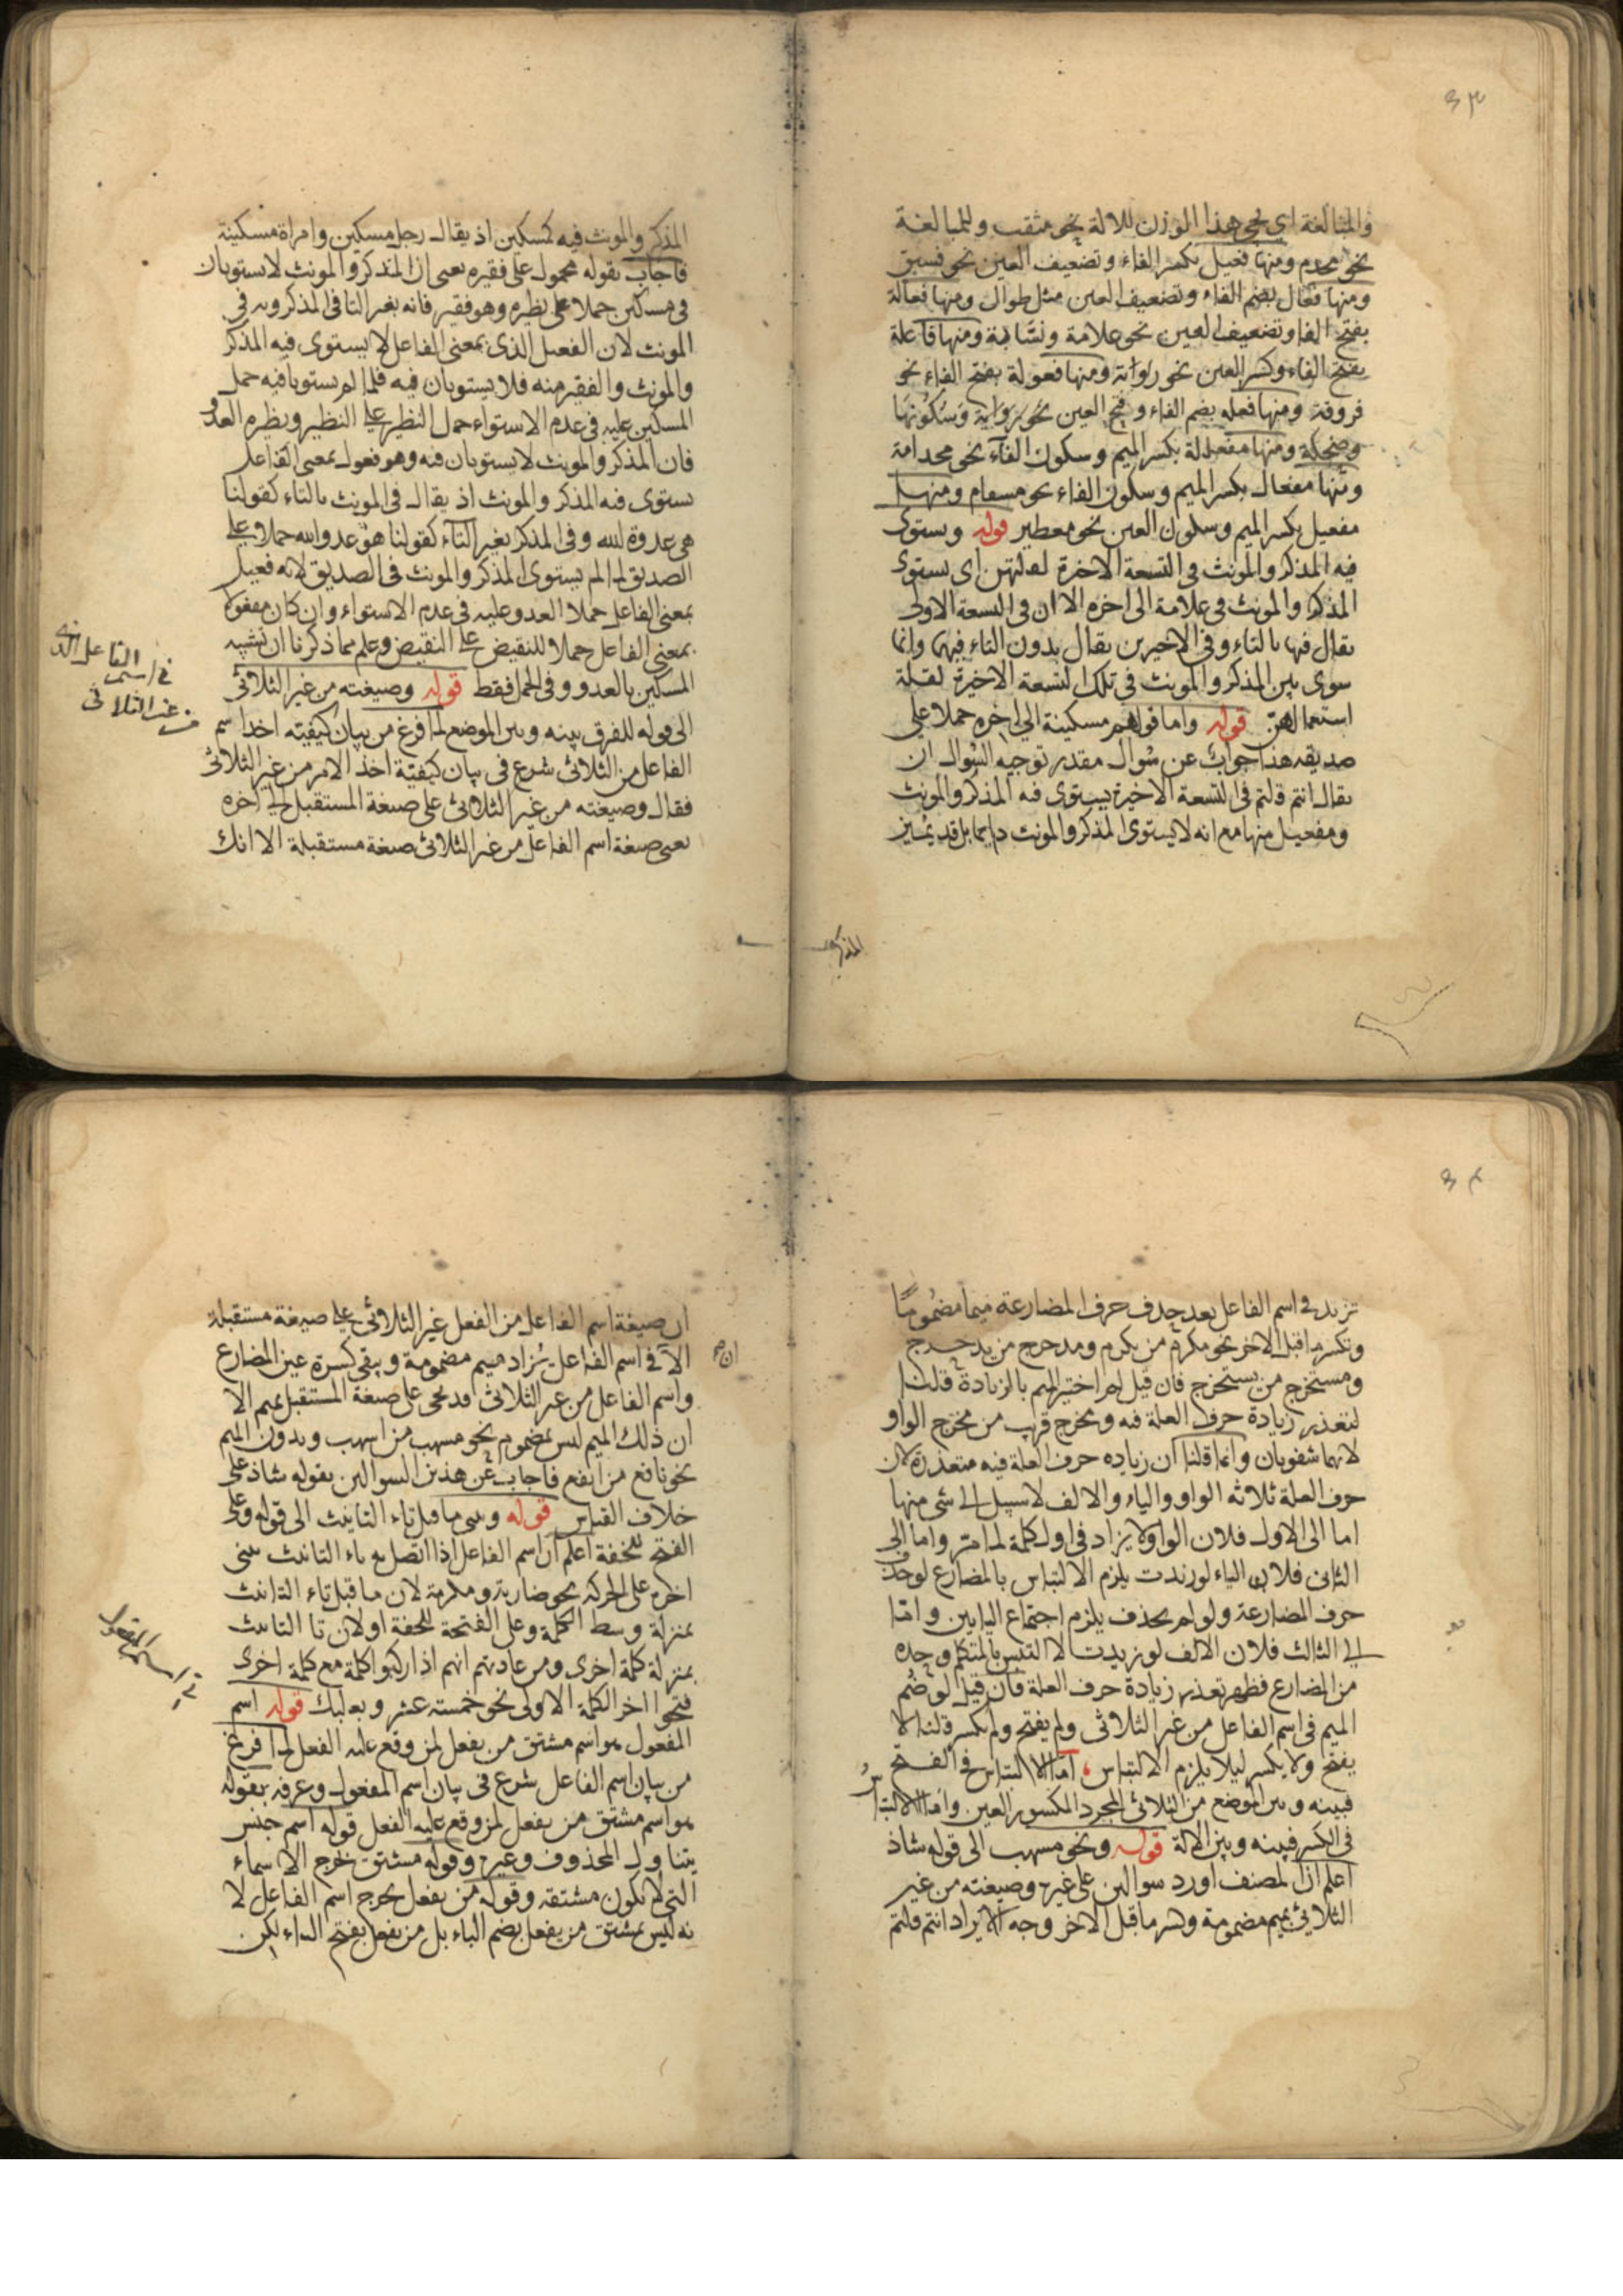 ٣٣
والمبالغة اى يجئ هذا الوزن للالة نحو مثقب وللمبالغة
نحو مجدم ومنها فعيل بكسر الفاء وتضعيف العين نحو فسيق
ومنها فعال بضم الفاء وتضعيف العين مثل طوال ومنها فعالة
بفتح الفا وتضعيف العين نحو علامة ونسابة ومنها فاعلة
بفتح الفاء وكسر العين نحو رواية ومنها فعولة بفتح الفاء نحو
فروقة ومنها فعله بضم الفاء وفتح العين نحو وسكونها
وضحكة ومنها مفعلة بكسر الميم وسكون الفاء نحو مجدامة
ومنها مفعال بكسر الميم وسكون الفاء نحو مسقام ومنها
مفعيل بكسر الميم وسكون العين نحو معطير قوله ويستوى
فيه المذكر والمونث فى التسعة الاخرة لقلتهن اى يستوى
المذكر والمونث فى علامة الى اخره الا ان فى التسعة الاولى
يقال فيها بالتاء وفى الاخيرين يقال بدون التاء فيهما وانما
سوى بين المذكر والمونث فى تلك التسعة الاخيرة لقلة
استعمالهن قوله واما قولهم مسكينة الى اخره حملا على
صديقه هذا جواب عن سوال مقدر توجيه السوال ان
يقال انتم قلتم فى التسعة الاخيرة يستوى فيه المذكر والمونث
ومفعيل منها مع انه لا يستوى المذكر والمونث دايما بل قد يميز
المذكر
المذكر والمونث فيه كمسكين اذ يقال رجل مسكين وامراة مسكينة
فاجاب بقوله محمول على فقيره يعنى ان المذكر والمونث لا يستويان
فى مسكين حملا على نظيره وهو فقير فانه بغير التا فى المذكر وبه فى
المونث لان الفعيل الذى بمعنى الفاعل لا يستوى فيه المذكر
والمونث والفقير منه فلا يستويان فيه فلما لم يستويا فيه حمل
المسكين عليه فى عدم الاستواء حمل النظير على النظير ونظيره العدو
فان المذكر والمونث لا يستويان فيه وهو فعول بمعنى الفاعل
يستوى فيه المذكر والمونث اذ يقال فى المونث بالتاء كقولنا
هى عدوة لله وفى المذكر بغير التاء كقولنا هو عدو الله حملا على
الصديق لما لم يستوى المذكر والمونث فى الصديق لانه فعيل
بمعنى الفاعل حملا العدو عليه فى عدم الاستواء وان كان مفعولا
بمعنى الفاعل حملا للنقيض على النقيض وعلم مما ذكرنا ان تشبيه
المسكين بالعدو وفى الحمل فقط قوله وصيغته من غير الثلاثى
الى قوله للفرق بينه وبين الموضع لما فرغ من بيان كيفيته اخذ اسم
الفاعل من الثلاثى شرع فى بيان كيفية اخذ الامر من غير الثلاثى
فقال وصيغته من غير الثلاثى على صيغة المستقبل الى اخره
يعنى صيغة اسم الفاعل من غير الثلاثى صيغة مستقبلة الا انك
فى اسم الفاعل الذى
من غير الثلاثى
٣٤
تزيد فى اسم الفاعل بعد حذف حرف المضارعة ميما مضموما
وتكسر ما قبل الاخر نحو مكرم من يكرم ومدحرج من يدحرج
ومستخرج من يستخرج فان قيل لم اختير الميم بالزيادة قلنا
لتعذير زيادة حرف العلة فيه ومخرج قريب من مخرج الواو
لانهما شفويان وانما قلنا ان زياده حرف العلة فيه متعذرة لان
حرف العلة ثلاثه الواو والياء والالف لا سبيل الى شى منها
اما الى الاول فلان الواو لا يزاد فى اول كلمة لما مر واما الى
الثانى فلان الياء لو زيدت يلزم الالتباس بالمضارع لو حذف
حرف المضارعة ولو لم يحذف يلزم اجتماع اليايين واما
الى الثالث فلان الالف لو زيدت لالتبس بالمتكلم وحده
من المضارع فظهر تعذير زيادة حرف العلة فان قيل لو ضم
الميم فى اسم الفاعل من غير الثلاثى ولم يفتح ولم يكسر قلنا لا
يفتح ولا يكسر ليلا يلزم الالتباس اما الالتباس فى الفتح
فبينه وبين الموضع من الثلاثى المجرد المكسور العين واما الالتباس
فى الكسر فبينه وبين الالة قوله ونحو مسهب الى قوله شاذ
اعلم ان المصنف اورد سوالين على غيره وصيغته من غير
الثلاثى بميم مضمومة وكسر ما قبل الاخر وجه الايراد انتم قلتم
ان صيغة اسم الفاعل من الفعل غير الثلاثى على صيغة مستقبلة
الا فى اسم الفاعل يزاد ميم مضمومة ويبقى كسرة عين المضارع
واسم الفاعل من غير الثلاثى قد يجى على صيغة المستقبل بميم الا
ان ذلك الميم ليس بمضموم نحو مسهب من اسهب وبدون الميم
نحو نافع من ايفع فاجاب عن هذين السوالين بقوله شاذ على
خلاف القياس قوله وبنى ما قبل تاء التانيث الى قوله وعلى
الفتح للخفة اعلم ان اسم الفاعل اذا اتصل به تاء التانيث يبنى
اخره على الحركة نحو ضاربة ومكرمة لان ما قبل تاء التانيث
بمنزلة وسط الكلمة وعلى الفتحة للخفة او لان تا التانيث
بمنزلة كلمة اخرى ومن عادتهم انهم اذا ركبوا كلمة مع كلمة اخرى
فتحوا اخر الكلمة الاولى نحو خمسته عشر وبعلبك قوله اسم
المفعول هو اسم مشتق من يفعل لمن وقع عليه الفعل لما فرغ
من بيان اسم الفاعل شرع فى بيان اسم المفعول وعرفه بقوله
هو اسم مشتق من يفعل لمن وقع عليه الفعل قوله اسم جنس
يتناول المحذوف وغيره وقوله مشتق خرج الاسماء
التى لا تكون مشتقه وقوله من يفعل يخرج اسم الفاعل لا
نه ليس بمشتق من يفعل بضم الياء بل من يفعل بفتح الياء لكن
فى اسم المفعول